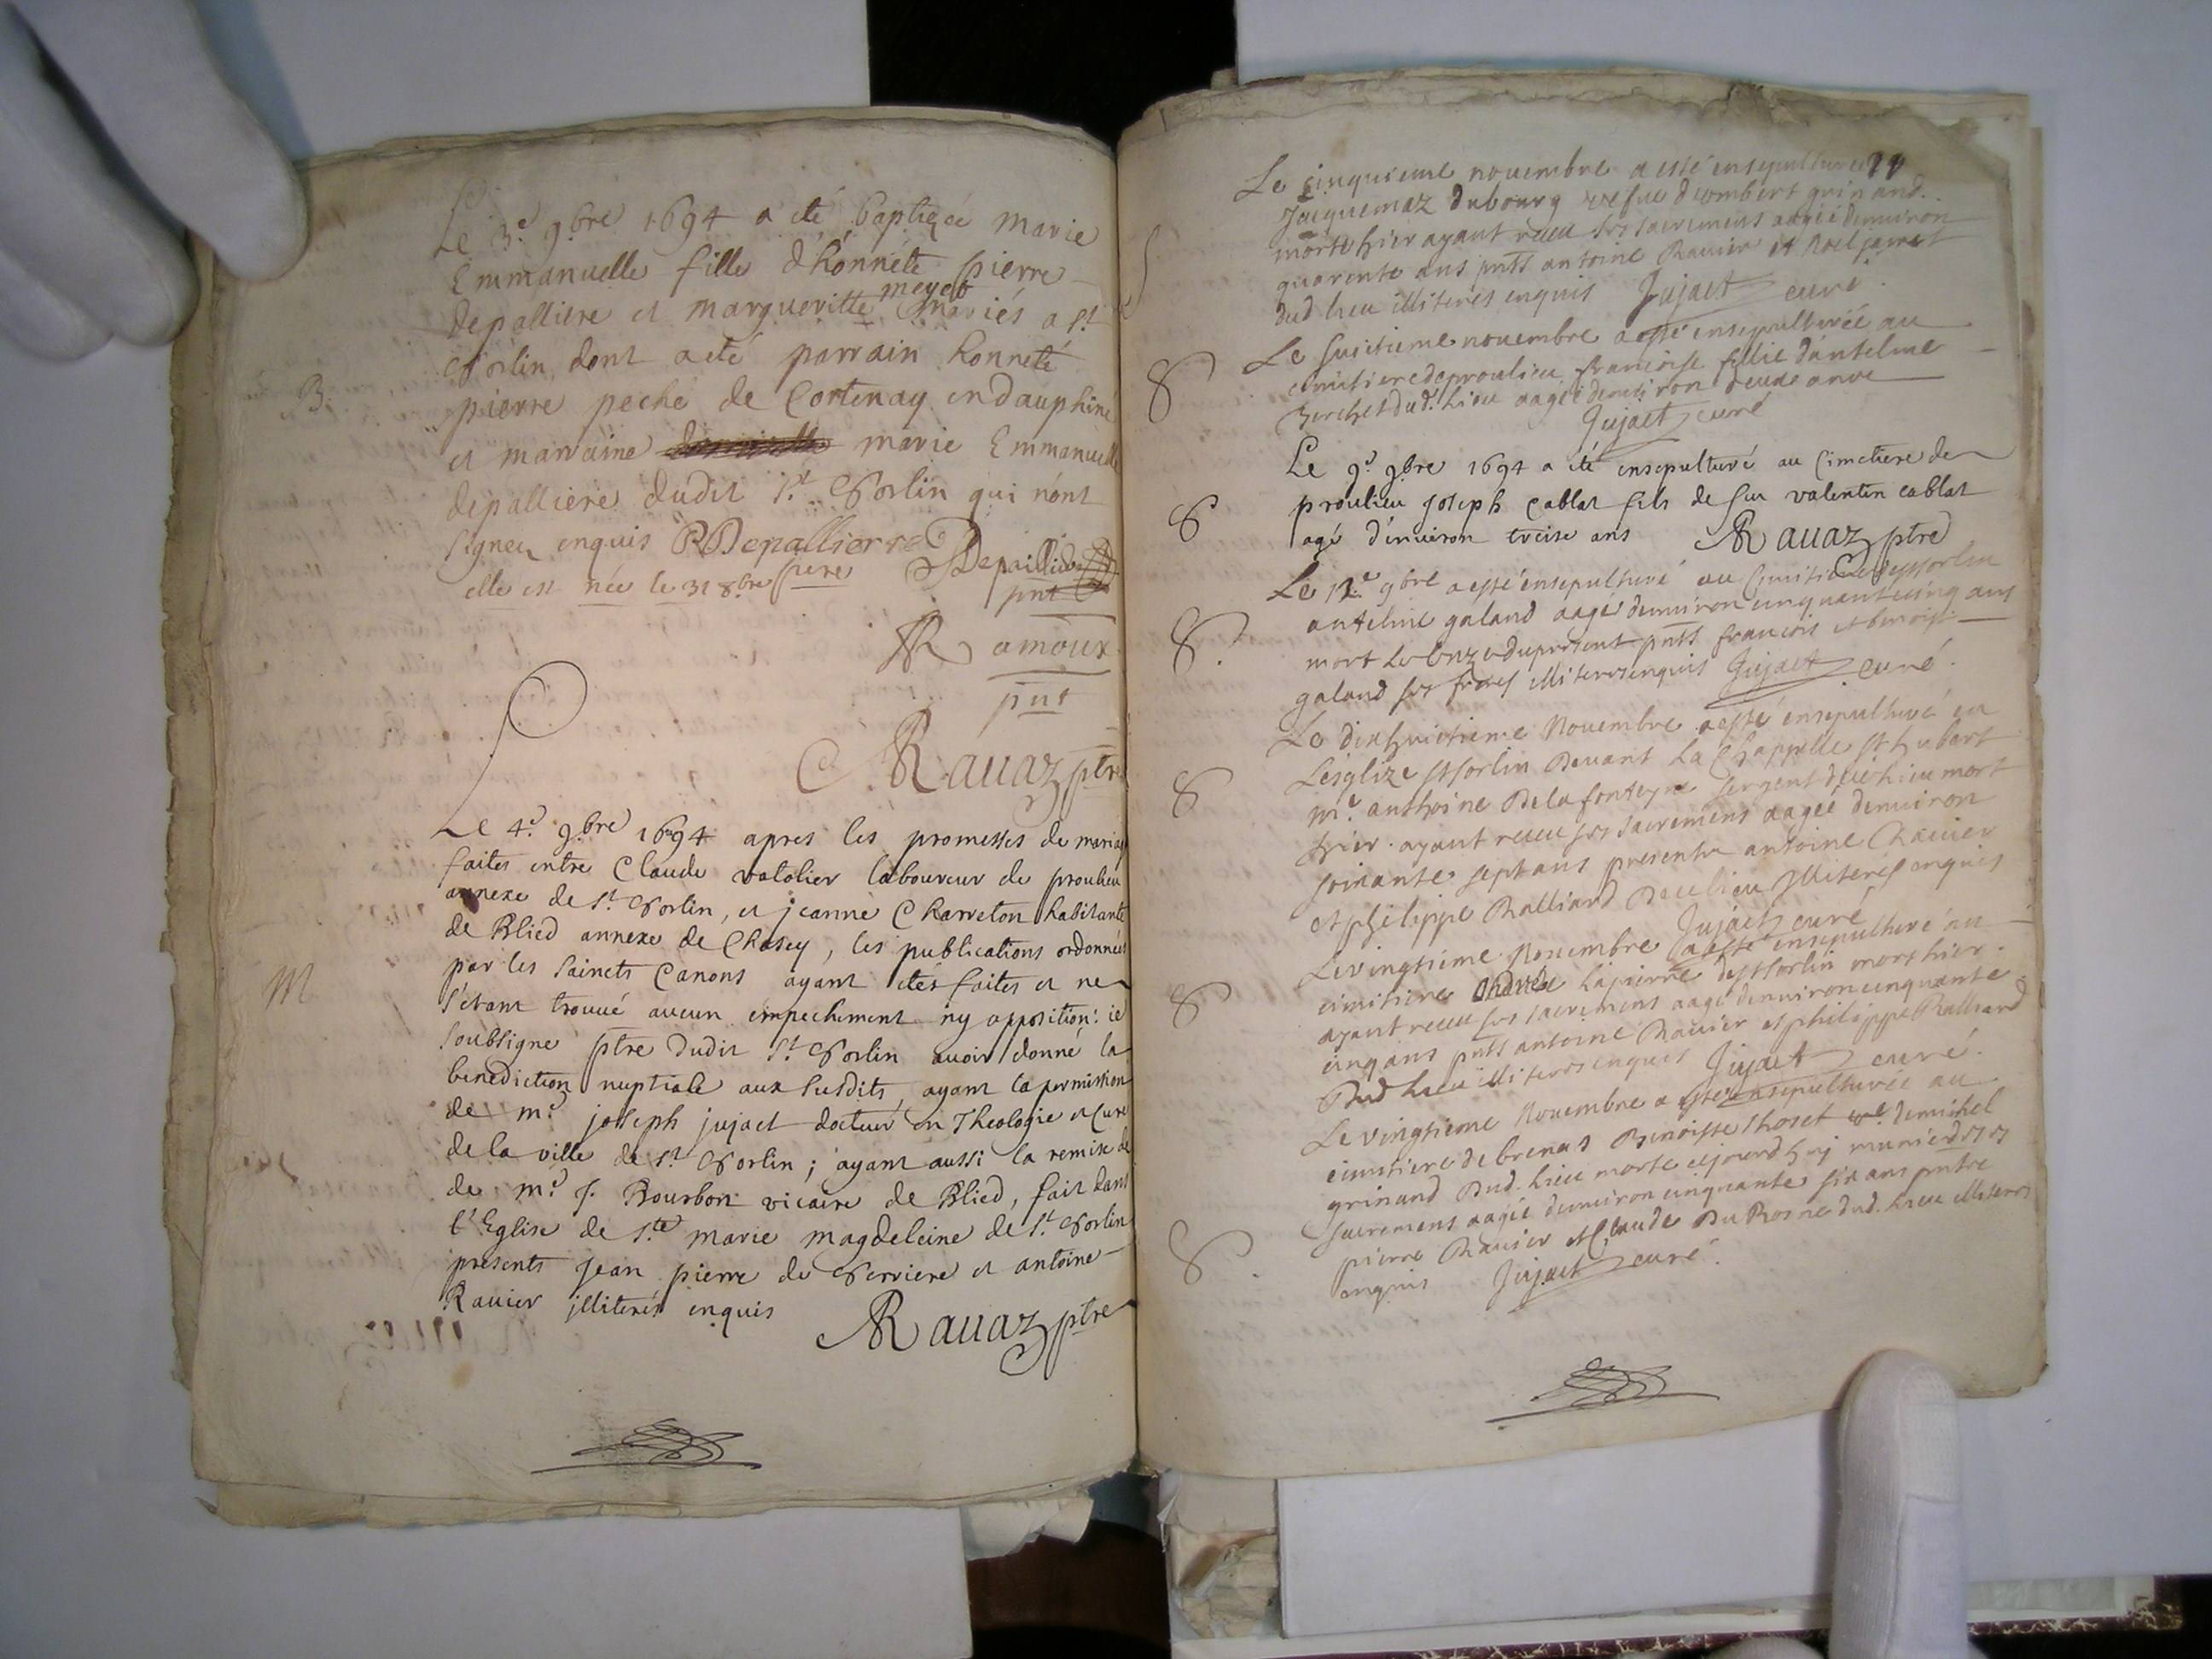 Le 3.e 9.bre 1694 a eté baptizée Marie
Emmanuelle fille d'honnéte pierre
depalliere et margueritte meyet mariés a St.
Sorlin dont a eté parrain honnete
B. pierre peche de Cortenay en dauphiné
et marraine marie Emmanuelle
depalliere dudit St. Sorlin qui n'ont
signer enquis P Depallierre
elle est née le 31 8.bre pere Depalliere
pnt
amoux
pnt
Rauaz ptre
Le 4.e 9.bre 1694 apres les promesses de mariage
faites entre Claude vatolier laboureur de proulieu
annexe de St. Sorlin, et jeanne Charveton habitante
de Blied annexe de Chasey, les publications ordonnées
M par les Saincts Canons ayant etés faites et ne
s'étant trouué aucun empechement ny opposition: ie
soubsigné ptre dudit St. Sorlin auoir donné la
benediction nuptiale aux susdits, ayant la permission
de m.e joseph jujaet docteur en Theologie et Curé
de la ville de St. Sorlin; ayant aussi la remise de
de m.e J. Bourbon vicaire de Blied, fait dans
l'Eglise de S.te marie magdeleine de St. Sorlin
presents jean pierre de Serviere et antoine
Rauier illiterés enquis Rauaz ptre
Le cinquieme nouembre a esté ensepulturée
Jacquemaz dubourg vefue d'ombert grinand
morte hier ayant receu ses sacremens aagée denuiron
quarente ans pnts antoine Rauier et Noel
dud lieu illiterés enquis Jujaet curé.
Le huictieme nouembre a esté ensepulturée au
S cimitiere de proulieu francoise fillie d'antelme
dud. lieu aagée denuiron deux
Jujaet curé
Le 9.e 9bre 1694 a eté ensepulturé au Cimetiere de
S proulieu joseph Cablat fils de feu valentin cablat
agé d'enuiron treise ans Rauaz ptre
Le 12.e 9bre a esté ensepulturé au Cimitiere de st sorlin
antelme galand aagé denuiron cinquante cinq ans
S. mort le onze du present pnts francois et benoist
galand ses freres illiteres enquis Jujaet curé.
Le dixhuictieme Nouembre a esté ensepulturé en
Lesglize st sorlin deuant la Chappelle st hubert
S m.e anthoine Delafonteyne sergent dud lieu mort
hier ayant receu ses sacremens aagée denuiron
soixante sept ans presents antoine Rauier
et philippe Ralliard illiterés enquis
Jujaet curé
Le vingtieme Nouembre a esté ensepulturé au
S cimitiere Lapierre de st sorlin mort hier
ayant receu ses sacremens aagé denuiron cinquante
cinq ans pnts antoine Rauier et philippe Ralliard
Dud lieu illiteres enquis Jujaet curé.
Le vingtieme Nouembre a esté ensepulturée au
cimitiere de brenas Benoiste thoset de michel
grinand Dud. lieu morte aujourdhuy munie de ses
sacremens aagée denuiron cinquante six ans
S. pierre Rauier et Claude Du Rosne dud. lieu illiteres
enquis Jujaet curé.